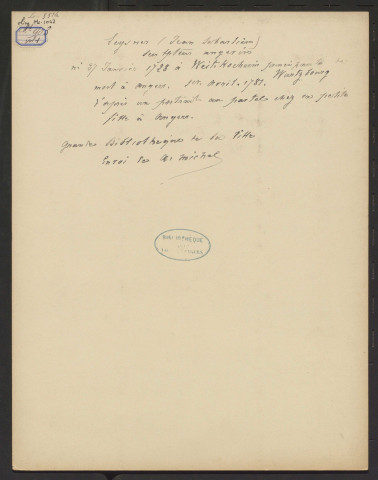 Leysner (Jean Sebastien)
Sculpteur angevin
né 27 Janvier 1728 à Weitshochein, principauté de
Wurtzbourg
mort à Angers. 1er Avril. 1781.
d'après un portrait au pastel chez sa petite
fille à Angers.
Bibliothèque de la Ville
Envoi de Mr Michel
BIBLIOTHEQUE